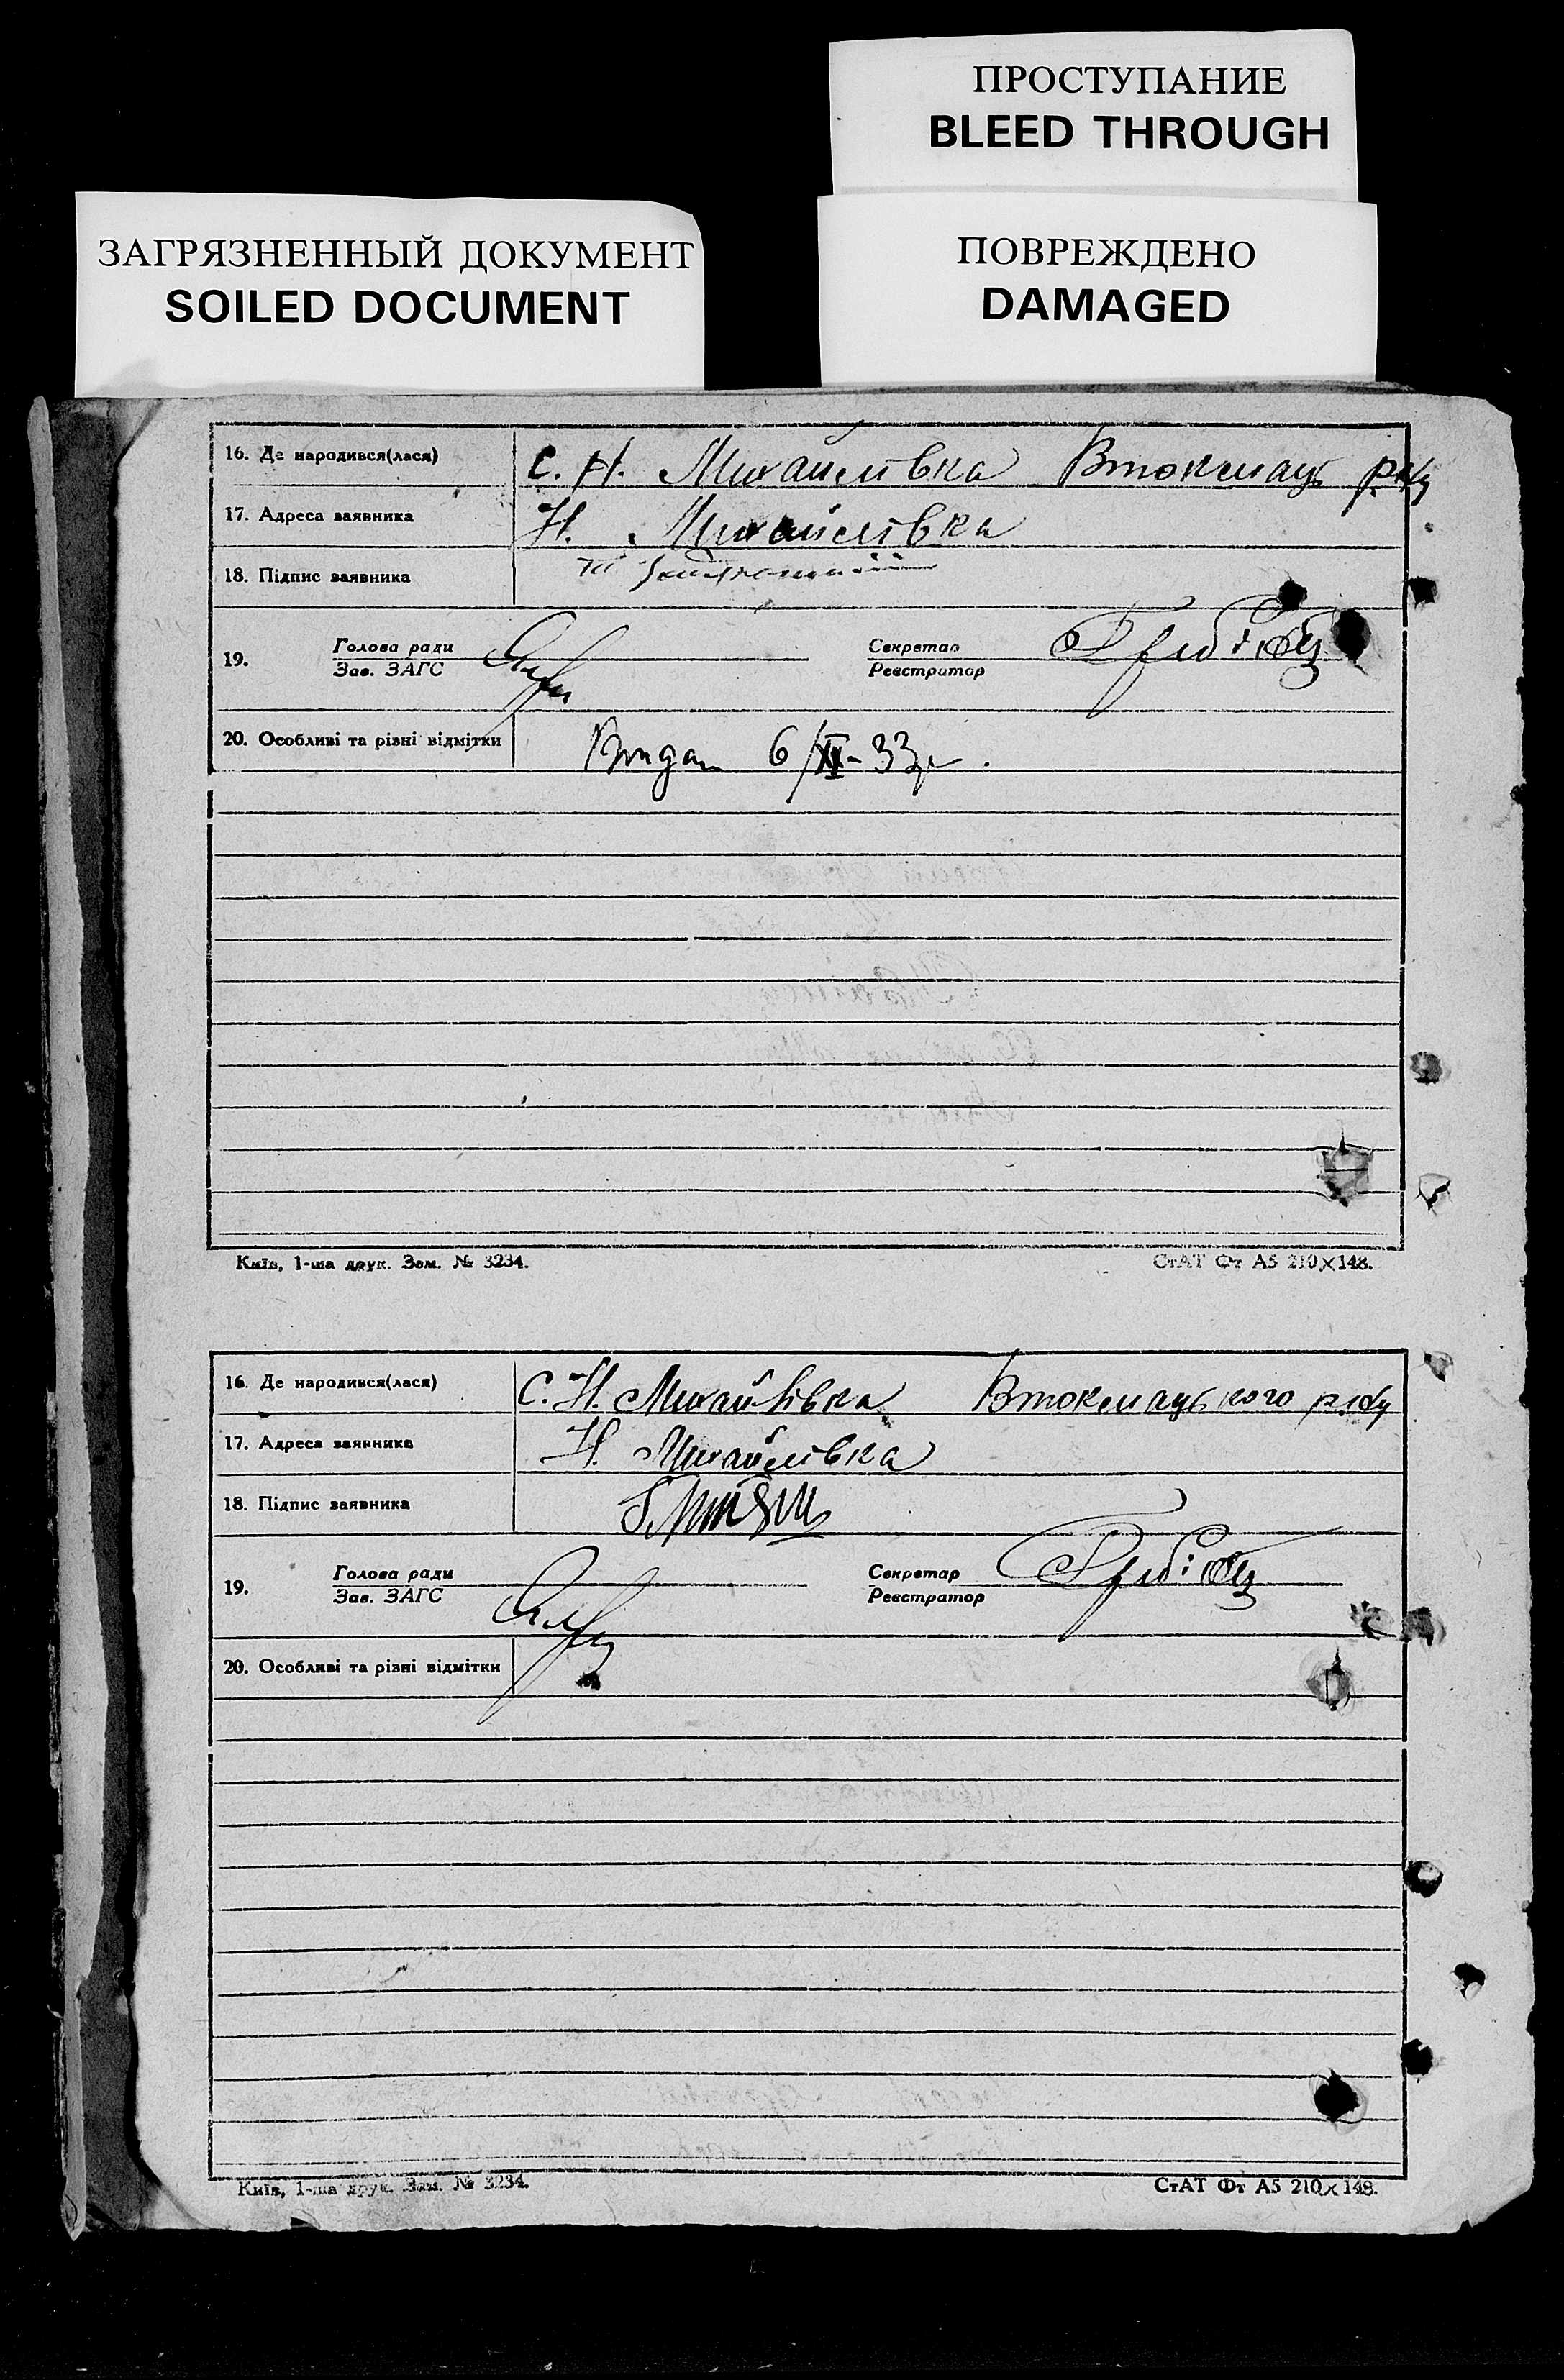 ПРОСТУПАНИЕ
BLEED THROUGH
ЗАГРЯЗНЕННЫЙ ДОКУМЕНТ
SOILED DOCUMENT
ПОВРЕЖДЕНО
DAMAGED
16. Де народився(лася) с. Н. Михайлівка Втокмацьк р-ну
17. Адреса заявника Н. Михайлівка
18. Підпис заявника
19. Голова ради Секретар
Зав. ЗАГС Реєстратор
20. Особливі та різні відмітки 6/XI-33р.
Київ, 1-ша друк. Зам. № 3234. СтАТ Фт А5 210×148.
16. Де народився(лася) С. Н. Михайлівка Втокмацького р-ну
17. Адреса заявника Н. Михайлівка
18. Підпис заявника
19. Голова ради Секретар
Зав. ЗАГС Реєстратор
20. Особливі та різні відмітки
Київ, 1-ша друк. Зам. № 3234. СтАТ Фт А5 210×148.